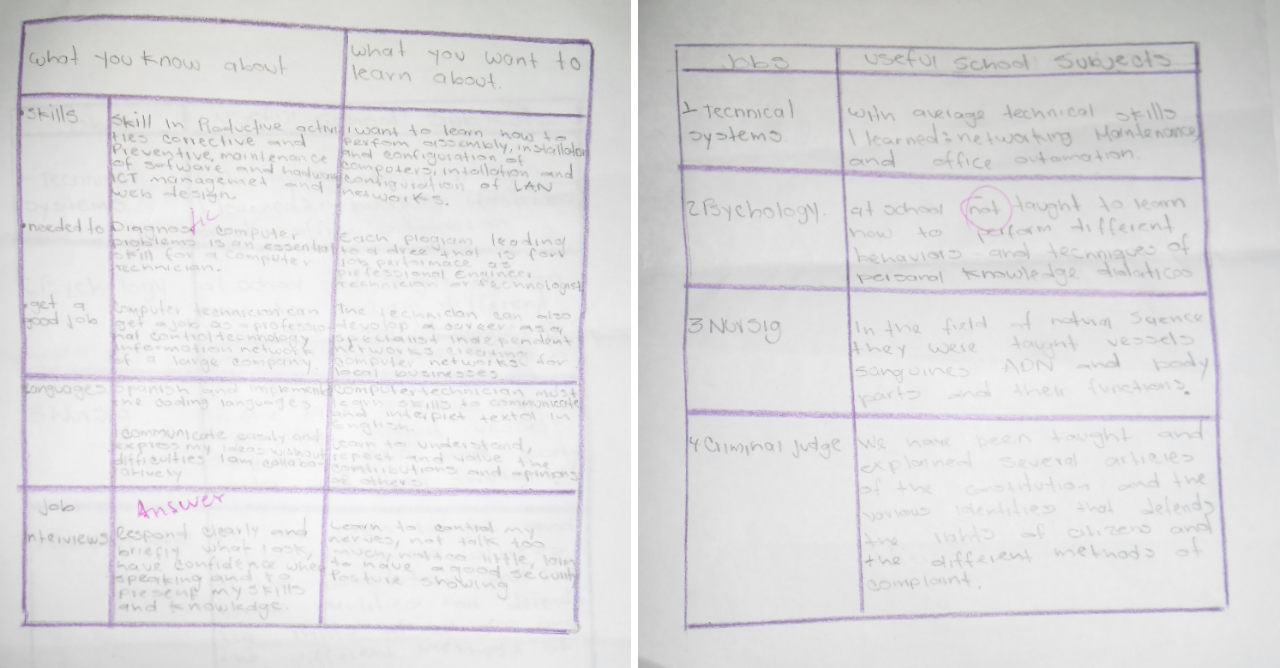 what you know about
what you want to
learn about.
•skills
Skill in Productive activi
ties corrective and
Preventive, maintenance
of software and
ICT managemet and
web design.
I want to learn how to
perform assembly,
and configuration of
computers, and
configuration of LAN
networks.
•needed to
Diagnos computer
tic
problems is an essential
skill for a computer
technician.
Each leading
is for
job as
professional Engineer
technician or technologist
•get a
good job
Computer technician can
get a job as a professio
nal control technology
information network
of a large company.
The technician can also
develop a career as a
specialist independent
networks creating
computer networks for
local businesses
languages
Spanish and
the coding languages
communicate easily and
express my ideas without
difficulties I am collabor
atively
computer technician must
learn skills to communicate
and interpret in
English.
Learn to understand,
and value the
contributions and opinions
of others.
Job
nterviews
Answer
Respond clearly and
briefly what I ask,
have confidence when
speaking and to
present my skills
and knowledge.
Learn to control my
nerves, not talk too
much, not too little,
to have a good security
Posture showing
Jobs
useful school Subjects
1 Tecnnical
systems.
with average technical skills
I learned: networking Maintenance,
and office automation.
2 Psychology.
at school not taught to learn
how to perform different
behaviors and tecnyques of
personal knowledge
3 Nursig
In the field of natural
they were taught vessels
sanguines ADN and body
parts and their functions.
4 Criminal judge
We have been taught and
explained several articles
of the constitution and the
various identities that defends
the rights of citizens and
the different methods of
complaint.